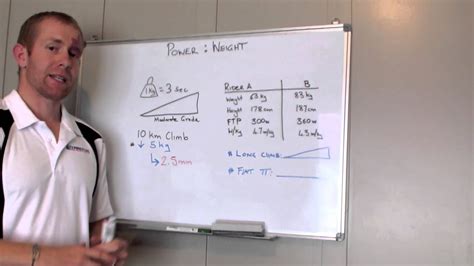 POWER : WEIGHT
1kg = 3 sec
Moderate Grade
10 km Climb
* ↓ 5kg
↳ 2.5min
RIDER A B
Weight 63kg 83kg
Height 178cm 187cm
FTP 300w 360w
W/kg 4.7w/kg 4.3w/kg
* LONG CLIMB:
* FLAT TT: